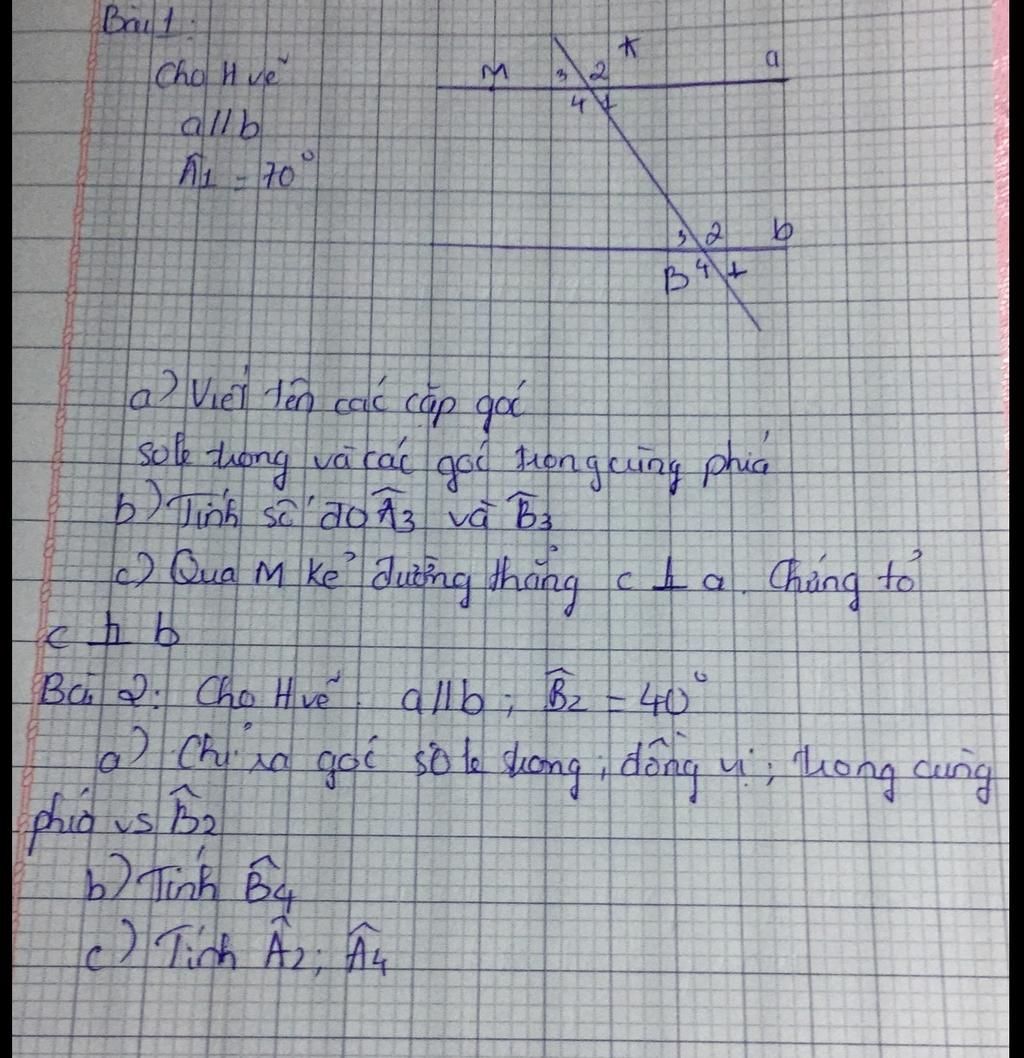 Bài 1:
Cho H vẽ
a//b
Â1 = 70°
M 3 2 A a
4 1
3 2 b
B 4 1
a) Viết tên các cặp góc
sole trong và các góc trong cùng phía
b) Tính số đo Â3 và B̂3
c) Qua M kẻ đường thẳng c ⊥ a. Chứng tỏ
c ⊥ b
Bài 2: Cho H vẽ. a//b; B̂2 = 40°
a) Chỉ ra góc so le trong; đồng vị; trong cùng
phía vs B̂2
b) Tính B̂4
c) Tính Â2; Â4